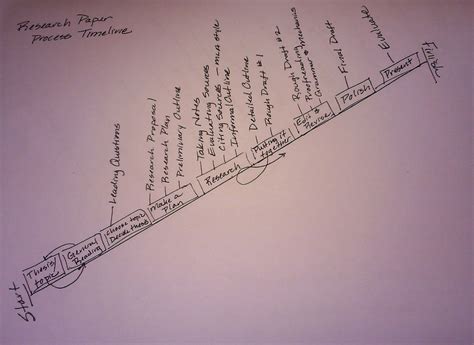 Research Paper
Process Timeline
Start
Thesis/
topic
General
Reading
choose topic
Decide thesis
Leading Questions
Make a
Plan
Research Proposal
Research Plan
Preliminary Outline
Research
Taking Notes
Evaluating Sources
Citing Sources - MLA style
Informal Outline
Putting it
together
Detailed Outline
Rough Draft #1
Edit &
Revise
Rough Draft #2
Proofreading + Mechanics
Grammar +
Polish
Final Draft
Present
Evaluate
Finish